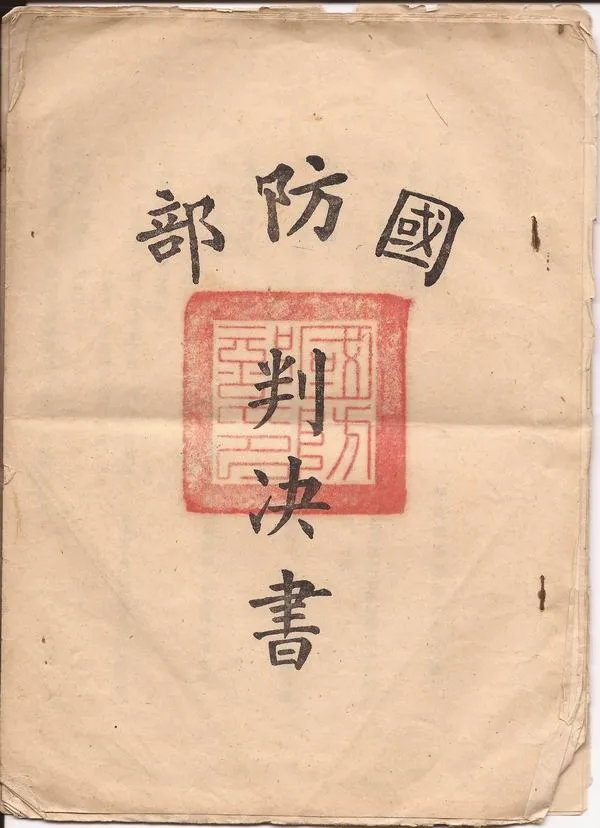 國防部
判決書
國防部印